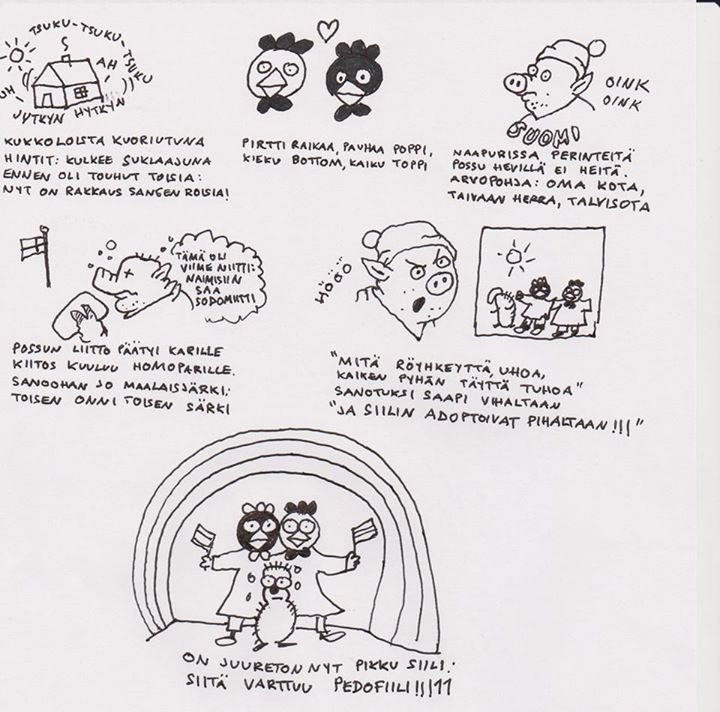 TSUKU-TSUKU-TSUKU
AH
UH
JYTKYN HYTKYN
KUKKOLOISTA KUORIUTUNA
HINTIT: KULKEE SUKLAAJUNA
ENNEN OLI TOUHUT TOISIA:
NYT ON RAKKAUS SANGEN ROISIA!
PIRTTI RAIKAA, PAUHAA POPPI,
KIEKU BOTTOM, KAIKU TOPPI
OINK
OINK
SUOMI
NAAPURISSA PERINTEITÄ
POSSU HEVILLÄ EI HEITÄ.
ARVOPOHJA: OMA KOTA,
TAIVAAN HERRA, TALVISOTA
TÄMÄ OLI
VIIME NIITTI:
NAIMISIIN
SAA
SODOMIITTI
POSSUN LIITTO PÄÄTYI KARILLE
KIITOS KUULUU HOMOPARILLE.
SANOOHAN JO MAALAISJÄRKI:
TOISEN ONNI TOISEN SÄRKI
HÖGÖ
"MITÄ RÖYHKEYTTÄ, UHOA,
KAIKEN PYHÄN TÄYTTÄ TUHOA"
SANOTUKSI SAAPI VIHALTAAN
"JA SIILIN ADOPTOIVAT PIHALTAAN!!!"
ON JUURETON NYT PIKKU SIILI:
SIITÄ VARTTUU PEDOFIILI!!!11